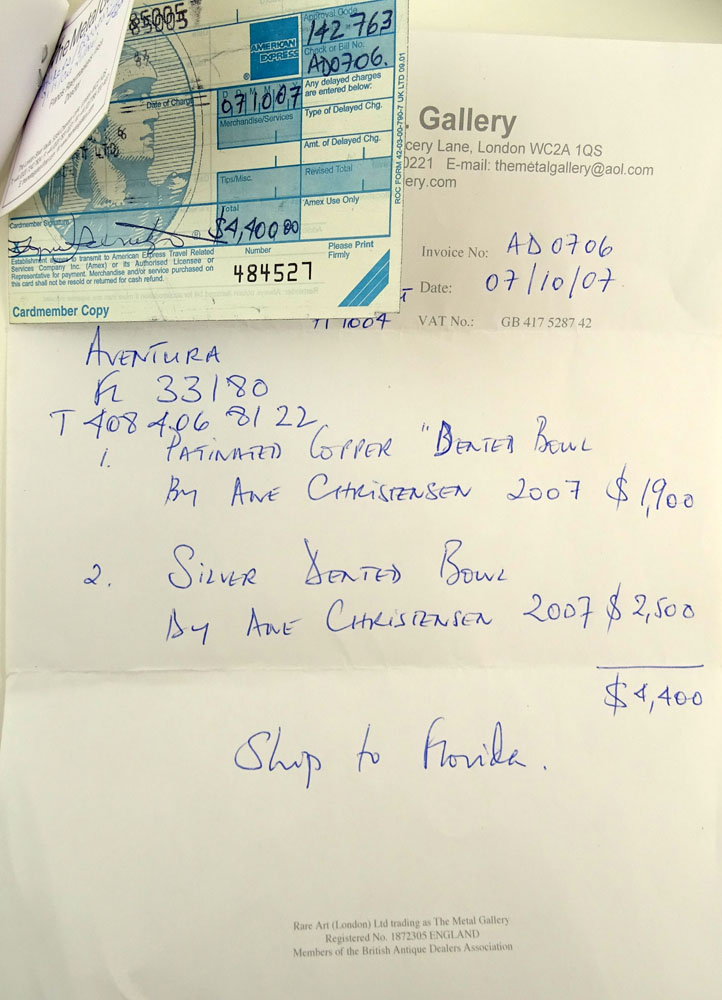 85005
The Metal
Director
Approval Code
142-763
AMERICAN
EXPRESS
®
Check or Bill No.
AD0706.
Date of Charge
071007
Any delayed charges
are entered below:
Merchandise/Services
Type of Delayed Chg.
Amt. of Delayed Chg.
Tips/Misc.
Revised Total
Total
$4,400 00
Amex Use Only
Cardmember Signature
Establishment agrees to transmit to American Express Travel Related
Services Company Inc. (Amex) or its Authorised Licensee or
Representative for payment. Merchandise and/or service purchased on
this card shall not be resold or returned for cash refund.
Number
484527
Please Print
Firmly
Cardmember Copy
ROC FORM 42-03-00-790-7 UK LTD 09.01
. Gallery
cery Lane, London WC2A 1QS
0221 E-mail: themetalgallery@aol.com
ery.com
Invoice No: AD0706
Date: 07/10/07
VAT No.: GB 417 5287 42
AVENTURA
FL 33180
T 408 406 8122
1. PATINATED COPPER "DENTED BOWL
BY ANE CHRISTENSEN 2007 $1,900
2. SILVER DENTED BOWL
BY ANE CHRISTENSEN 2007 $2,500
$4,400
Ship to Florida.
Rare Art (London) Ltd trading as The Metal Gallery
Registered No. 1872305 ENGLAND
Members of the British Antique Dealers Association